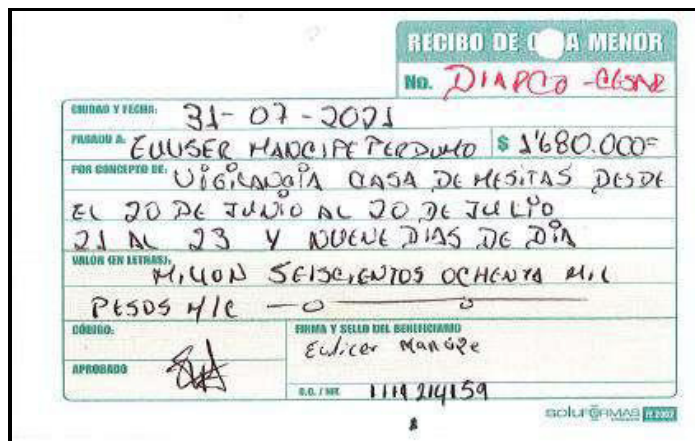 RECIBO DE C A MENOR
No. DIARCO - CESAR
CIUDAD Y FECHA: 31-07-2021
PAGADO A: EULISER MANCIPE PERDUMO $ 1'680.000=
POR CONCEPTO DE: VIGILANCIA CASA DE MESITAS DESDE
EL 20 DE JUNIO AL 20 DE JULIO
21 AL 23 Y NUEVE DIAS DE DIA
VALOR (EN LETRAS): MILLON SEISCIENTOS OCHENTA MIL
PESOS M/C
CÓDIGO:
FIRMA Y SELLO DEL BENEFICIARIO
Eulicer Mancipe
APROBADO
C.C. / NIT. 1114214159
SOLUFORMAS